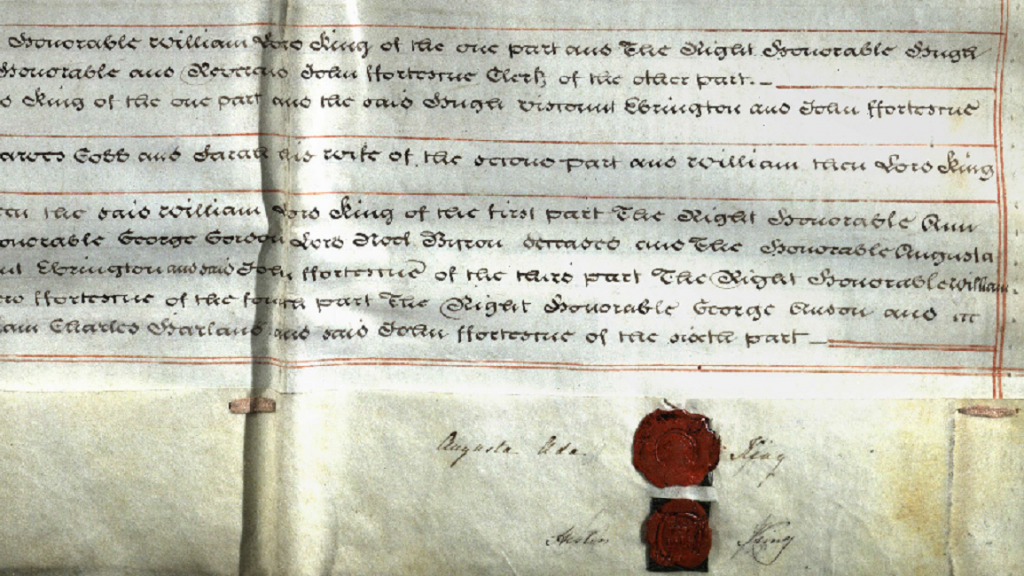 Honorable William Lord King of the one part and The Right Honorable Hugh
Honorable and Reverend John ffortescue Clerk of the other part.
King of the one part and the said Hugh Viscount Ebrington and John ffortescue
Cobb and Sarah his wife of the second part and William then Lord King
the said William Lord King of the first part The Right Honorable Ann
George Gordon Lord Noel Byron deceased and The Honorable Augusta
Ebrington and said John ffortescue of the third part The Right Honorable William
ffortescue of the fourth part The Right Honorable George Anson and
Charles Harland and said John ffortescue of the sixth part
Augusta Ada King
King